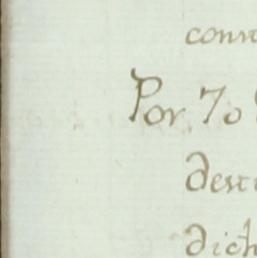 conv
Por 70
dest
dich